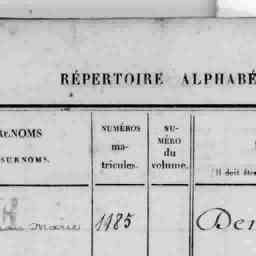 RÉPERTOIRE ALPHABÉ
RENOMS
SURNOMS.
NUMÉROS
ma-
tricules.
NU-
MÉRO
du
volume.
(Il doit être
Marie
1185
Der